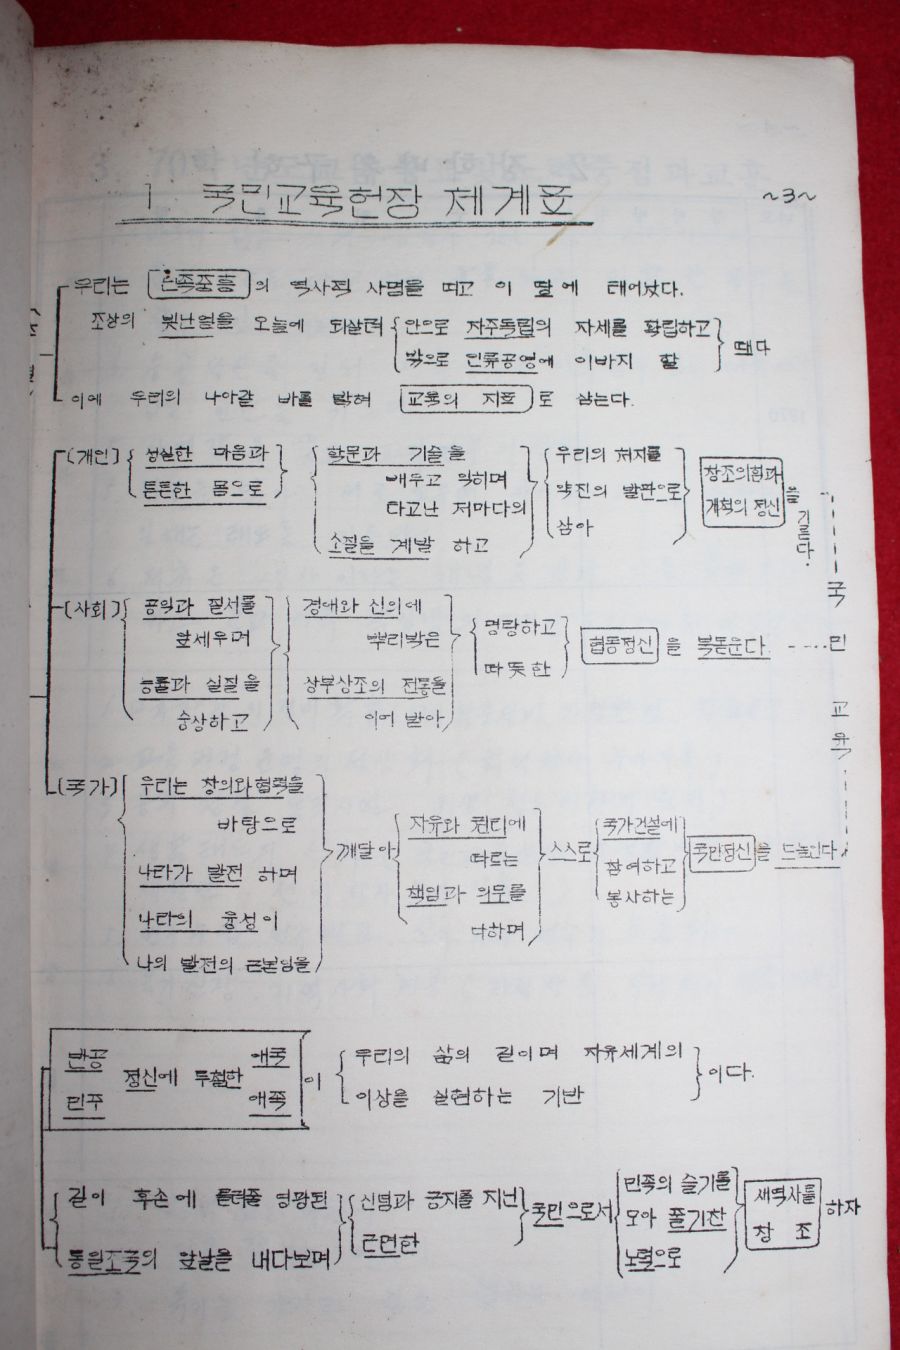 1. 국민교육헌장 체계표
~3~
우리는 민족중흥의 역사적 사명을 띠고 이 땅에 태어났다.
조상의 빛난얼을 오늘에 되살려
안으로 자주독립의 자세를 확립하고
밖으로 인류공영에 이바지 할
때다
이에 우리의 나아갈 바를 밝혀 교육의 지표로 삼는다.
(개인)
성실한 마음과
튼튼한 몸으로
학문과 기술을
배우고 익히며
타고난 저마다의
소질을 계발 하고
우리의 처지를
약진의 발판으로
삼아
창조의힘과
개척의 정신
을 기른다.
(사회)
공익과 질서를
앞세우며
능률과 실질을
숭상하고
경애와 신의에
뿌리박은
상부상조의 전통을
이어 받아
명랑하고
따뜻한
협동정신 을 북돋운다.
국민교육
(국가)
우리는 창의와협력을
바탕으로
나라가 발전 하며
나라의 융성이
나의 발전의 근본임을
깨달아
자유와 권리에
따르는
책임과 의무를
다하며
스스로
국가건설에
참여하고
봉사하는
국민정신을 드높인다.
반공
민주
정신에 투철한
애국
애족
이
우리의 삶의 길이며 자유세계의
이상을 실현하는 기반
이다.
길이 후손에 물려줄 영광된
통일조국의 앞날을 내다보며
신념과 긍지를 지닌
근면한
국민으로서
민족의 슬기를
모아 줄기찬
노력으로
새역사를
창 조
하자